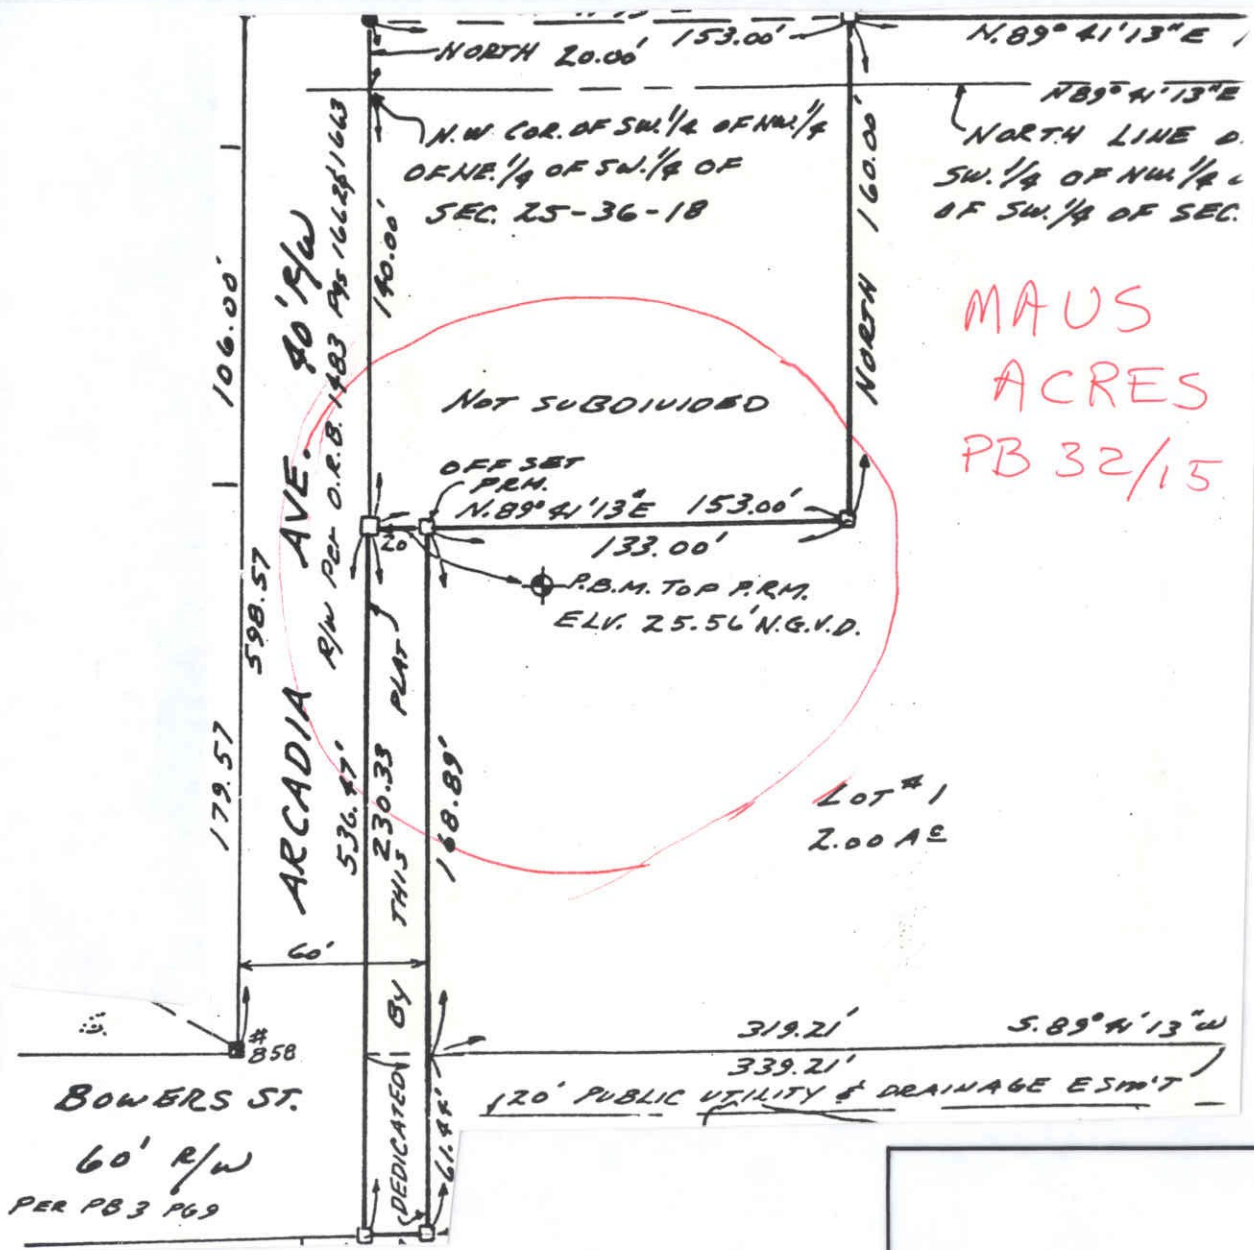 153.00'
N.89° 41' 13" E
NORTH 20.00'
N89° 41' 13" E
N.W. COR. OF SW. 1/4 OF NW. 1/4
OF NE. 1/4 OF SW. 1/4 OF
SEC. 25-36-18
NORTH LINE O
SW. 1/4 OF NW. 1/4
OF SW. 1/4 OF SEC.
NORTH 160.00'
140.00'
106.00'
598.57
179.57
ARCADIA AVE. 40' R/W
R/W Per O.R.B. 1483 Pgs 1662 & 1663
MAUS
ACRES
PB 32/15
NOT SUBDIVIDED
OFF SET
P.R.M.
N.89° 41' 13" E 153.00'
20
133.00'
P.B.M. TOP P.R.M.
ELV. 25.56' N.G.V.D.
536.47'
230.33
168.89'
DEDICATED BY THIS PLAT
LOT #1
2.00 Ac
60'
#
858
319.21'
S.89° 41' 13" W
339.21'
20' PUBLIC UTILITY & DRAINAGE ESM'T
BOWERS ST.
60' R/W
PER PB 3 PG 9
61.44'